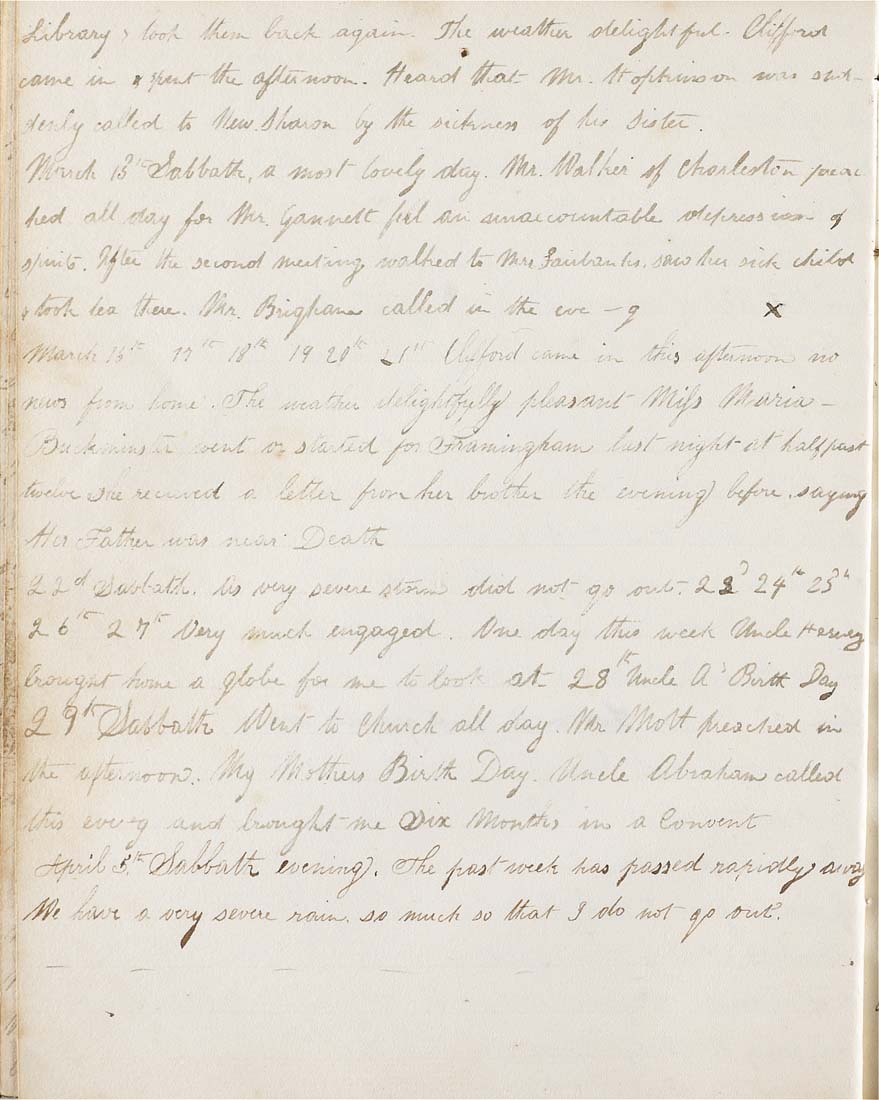 Library & took them back again. The weather delightful. Clifford
came in & spent the afternoon. Heard that Mr. Hopkinson was sud-
denly called to New Sharon by the sickness of his Sister.
March 15th Sabbath, a most lovely day. Mr. Walker of Charleston prea
hed all day for Mr. Gannett feel an unaccountable depression of
spirits. After the second meeting walked to Mrs Fairbanks, saw her sick child
& took tea there. Mr. Brigham called in the eve - g x
March 16th 17th 18th 19 20th 21st Clifford came in this afternoon no
news from home. The weather delightfully pleasant Miss Maria -
Buckminster went or started for Framingham last night at half past
twelve she received a letter from her brother the evening before. saying
Her Father was near Death
22d Sabbath. As very severe storm did not go out. 23d 24th 25th
26th 27th Very much engaged. One day this week Uncle Harvey
brought home a globe for me to look at 28th Uncle A's Birth Day
29th Sabbath Went to Church all day. Mr Mott preached in
the afternoon. My Mothers Birth Day. Uncle Abraham called
this eve-g and brought me Six Months in a Convent
April 5th Sabbath evening. The past week has passed rapidly away
We have a very severe rain. so much so that I do not go out.